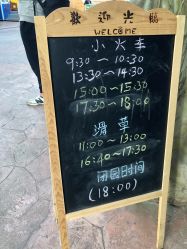 歡迎光臨
WELCOME
小火车
9:30～10:30
13:30～14:30
15:00～15:30
17:30～18:00
滑草
11:00～13:00
16:40～17:30
闭园时间
(18:00)